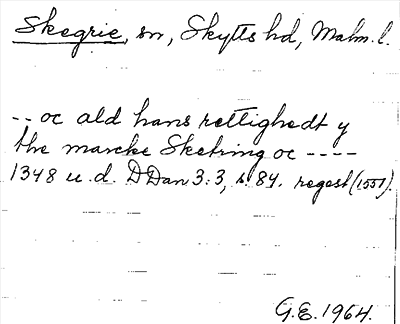 Skegrie, sn, Skytts hd, Malm. l.
-- oc ald hans rettighedt y
the marcke Sketring oc ----
1348 u. d. DDan 3:3, s. 84. regest (1551).
G.E. 1964.